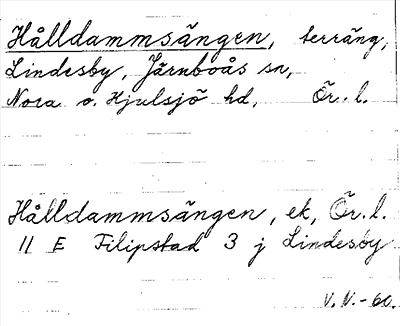 Hålldammsängen, terräng,
Lindesby, Järnboås sn,
Nora o. Hjulsjö hd, Ör. l.
Hålldammsängen, ek, Ör. l.
11 E Filipstad 3 j Lindesby
V. N. - 60.